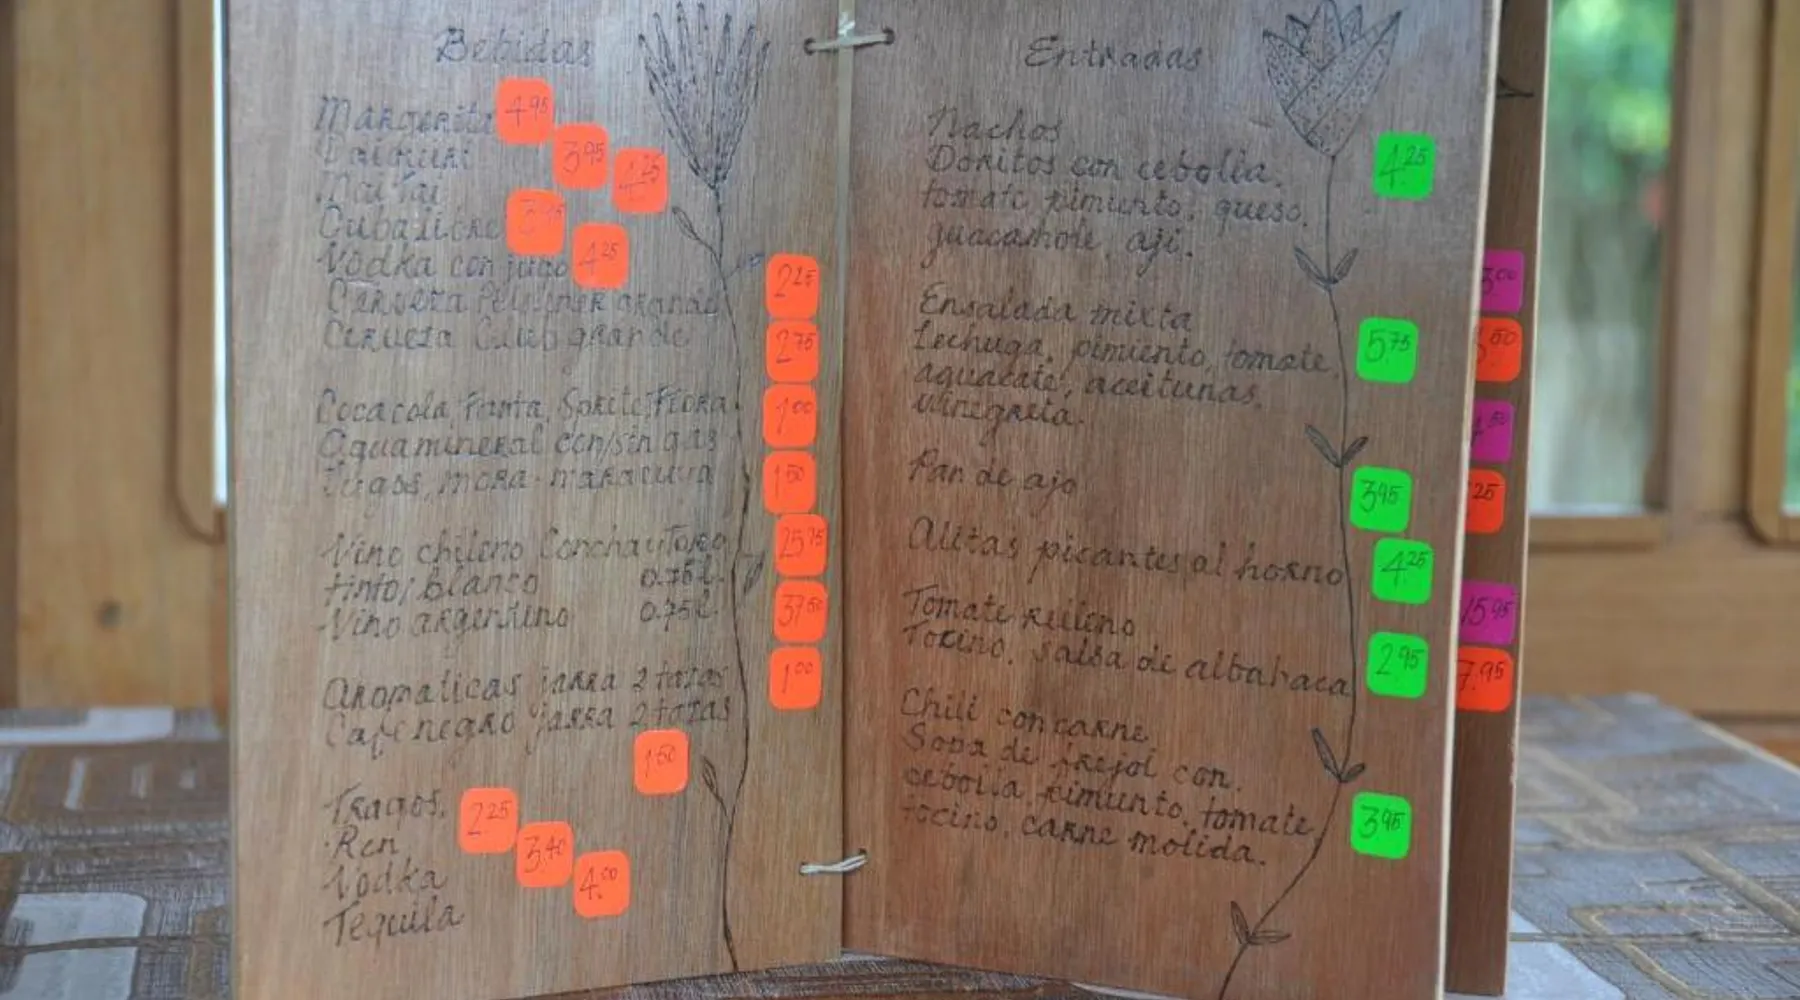 Bebidas
Margerita 4.95
Daiquiri 3.95
Mai Tai 4.25
Cuba libre 3.95
Vodka con jugo 4.25
Cerveza Pilsener grande 2.25
Cerveza Club grande 2.75
Coca cola, Fanta, Sprite, Fiora 1.00
Agua mineral con/sin gas
Jugos, mora-maracuya 1.50
Vino chileno Concha y Toro 25.75
tinto/blanco 0.75l.
Vino argentino 0.75l. 37.50
Aromaticas jarra 2 tazas 1.00
Cafe negro jarra 2 tazas
1.50
Tragos. 2.25
Ron 3.40
Vodka 4.00
Tequila
Entradas
Nachos
Doritos con cebolla, 4.25
tomate pimiento, queso,
guacamole, aji.
Ensalada mixta
Lechuga, pimiento, tomate, 5.75
aguacate, aceitunas,
vinegreta.
Pan de ajo 3.95
Alitas picantes al horno 4.25
Tomate relleno
Tocino, salsa de albahaca 2.95
Chili con carne
Sopa de frejol con
cebolla, pimiento, tomate, 3.95
tocino, carne molida.
3.00
.50
.50
25
15.95
7.95